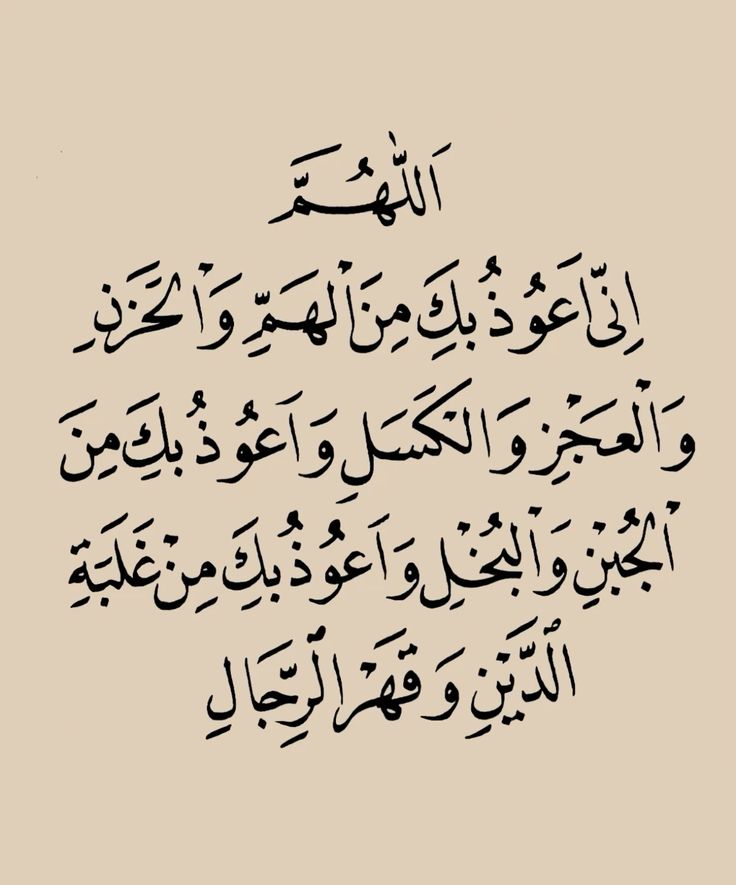 اَللّٰهُمَّ
اِنِّىۤ اَعُوْذُ بِكَ مِنَ الْهَمِّ وَالْحَزَنِ
وَالْعَجْزِ وَالْكَسَلِ وَاَعُوْذُ بِكَ مِنَ
الْجُبْنِ وَالْبُخْلِ وَاَعُوْذُ بِكَ مِنْ غَلَبَةِ
الدَّيْنِ وَ قَهْرِ الرِّجَالِ